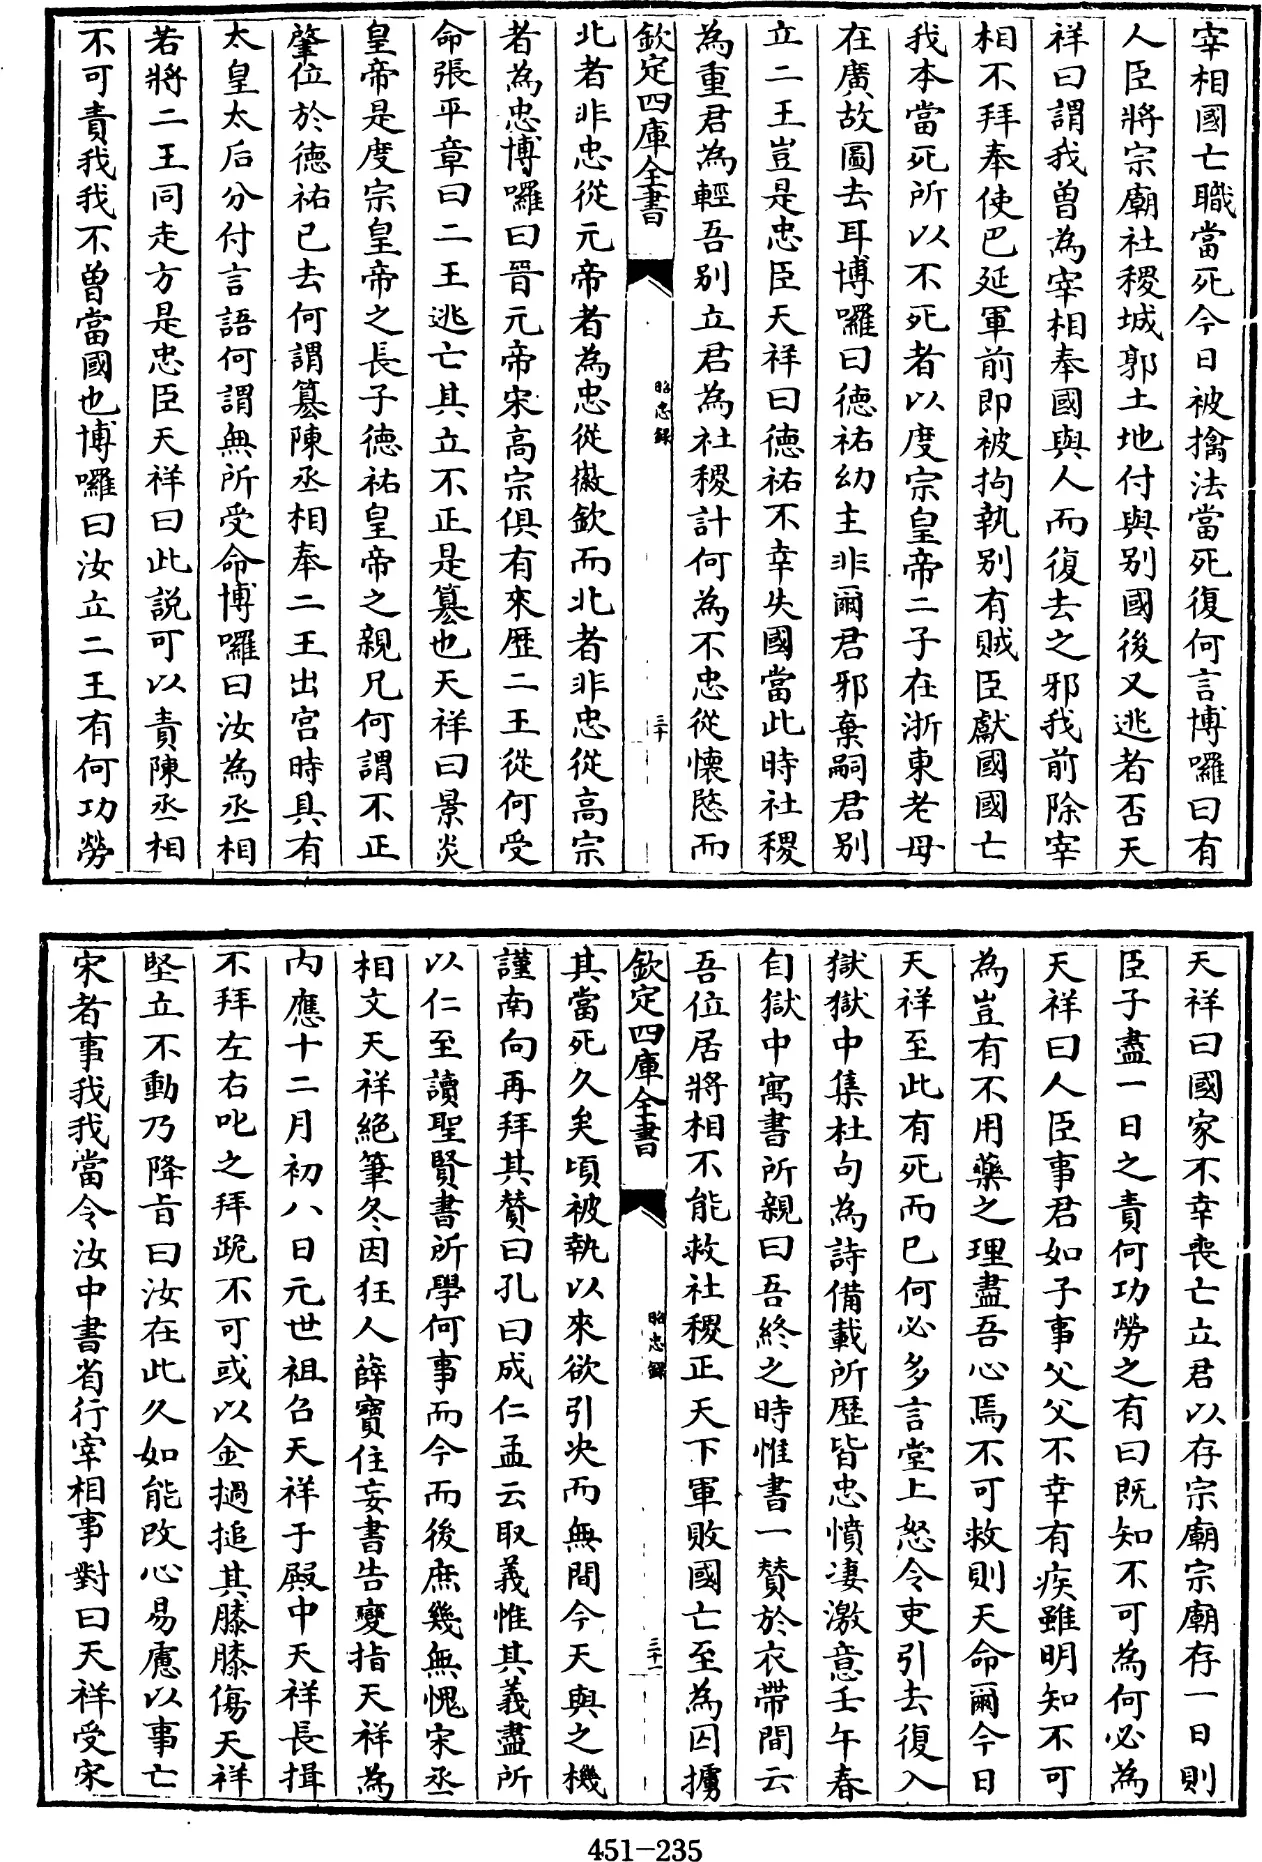 宰相國亡職當死今日被擒法當死復何言博囉曰有
人臣將宗廟社稷城郭土地付與别國後又逃者否天
祥曰謂我曾為宰相奉國與人而復去之邪我前除宰
相不拜奉使巴延軍前即被拘執别有賊臣獻國國亡
我本當死所以不死者以度宗皇帝二子在浙東老母
在廣故圖去耳博囉曰德祐幼主非爾君邪棄嗣君别
立二王豈是忠臣天祥曰德祐不幸失國當此時社稷
為重君為輕吾别立君為社稷計何為不忠從懷愍而
欽定四庫全書
昭忠錄
三十
北者非忠從元帝者為忠從徽欽而北者非忠從高宗
者為忠博囉曰晋元帝宋高宗俱有來歴二王從何受
命張平章曰二王逃亡其立不正是篡也天祥曰景炎
皇帝是度宗皇帝之長子德祐皇帝之親兄何謂不正
肇位於德祐已去何謂篡陳丞相奉二王出宫時具有
太皇太后分付言語何謂無所受命博囉曰汝為丞相
若將二王同走方是忠臣天祥曰此説可以責陳丞相
不可責我我不曾當國也博囉曰汝立二王有何功勞
天祥曰國家不幸喪亡立君以存宗廟宗廟存一日則
臣子盡一日之責何功勞之有曰既知不可為何必為
天祥曰人臣事君如子事父父不幸有疾雖明知不可
為豈有不用藥之理盡吾心焉不可救則天命爾今日
天祥至此有死而已何必多言堂上怒令吏引去復入
獄獄中集杜句為詩備載所歴皆忠憤凄激意壬午春
自獄中寓書所親曰吾終之時惟書一賛於衣帶間云
吾位居將相不能救社稷正天下軍敗國亡至為囚擄
欽定四庫全書
昭忠錄
三十一
其當死久矣頃被執以來欲引决而無間今天與之機
謹南向再拜其賛曰孔曰成仁孟云取義惟其義盡所
以仁至讀聖賢書所學何事而今而後庶幾無愧宋丞
相文天祥絶筆冬因狂人薛寶住妄書告變指天祥為
内應十二月初八日元世祖召天祥于殿中天祥長揖
不拜左右叱之拜跪不可或以金撾搥其膝膝傷天祥
堅立不動乃降旨曰汝在此久如能改心易慮以事亡
宋者事我我當令汝中書省行宰相事對曰天祥受宋
451-235